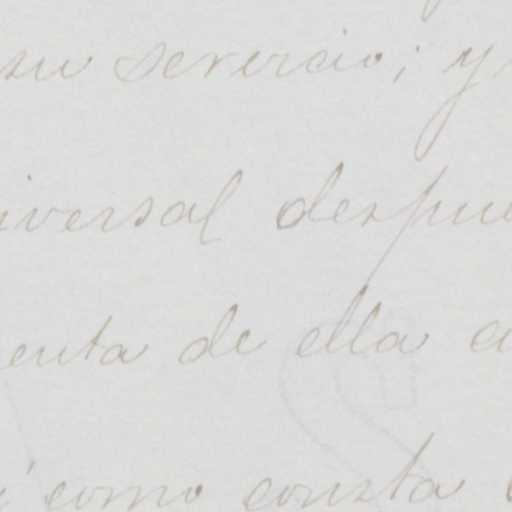 su severcio; y
iversal despue
enta de ella a
como consta